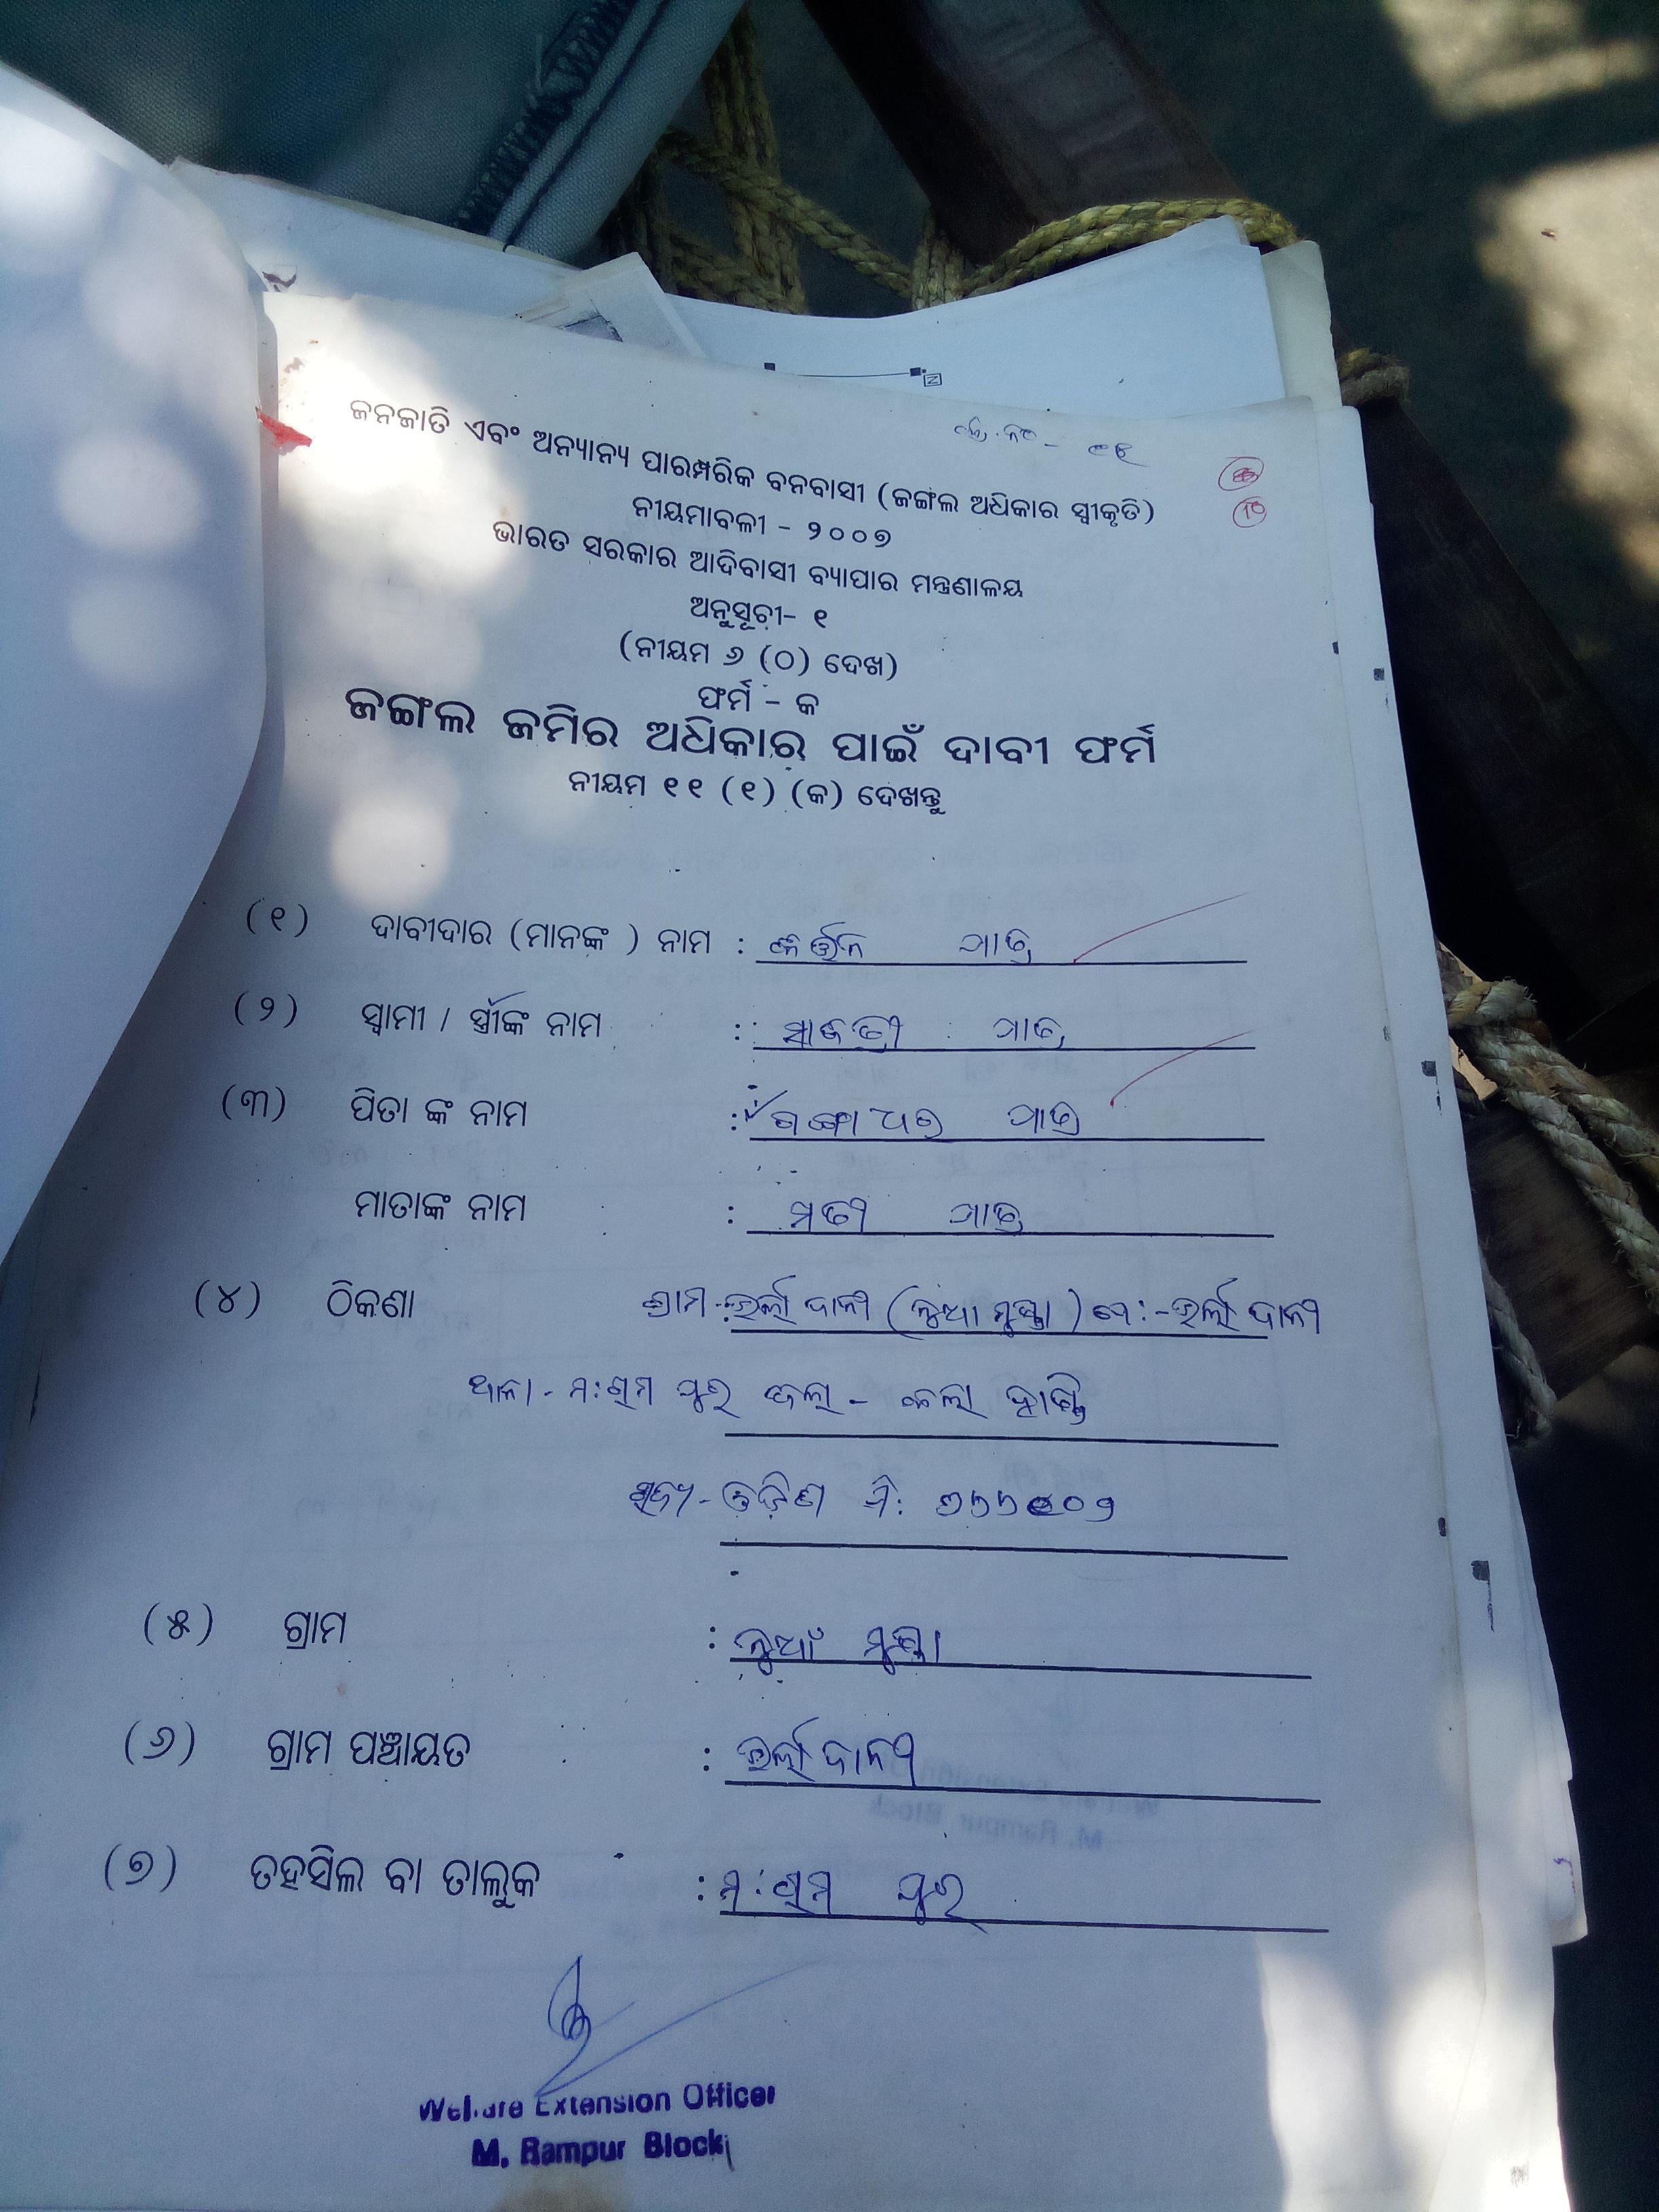 ଜନଜାତି ଏବଂ ଅନ୍ୟାନ୍ୟ ପାରମ୍ପରିକ ବନବାସୀ (ଜଙ୍ଗଲ ଅଧିକାର ସ୍ୱୀକୃତି)
ନୀୟମାବଳୀ - ୨୦୦୭
ଭାରତ ସରକାର ଆଦିବାସୀ ବ୍ୟାପାର ମନ୍ତ୍ରଣାଳୟ
ଅନୁସୂଚୀ- ୧
(ନୀୟମ ୬ (ଠ) ଦେଖ)
ଫର୍ମ - କ
ଜଙ୍ଗଲ ଜମିର ଅଧିକାର ପାଇଁ ଦାବୀ ଫର୍ମ
ନୀୟମ ୧୧ (୧) (କ) ଦେଖନ୍ତୁ
(୧) ଦାବୀଦାର (ମାନଙ୍କ ) ନାମ : ପାତ୍ର
(୨) ସ୍ୱାମୀ / ସ୍ତ୍ରୀଙ୍କ ନାମ : ପାତ୍ର
(୩) ପିତା ଙ୍କ ନାମ : ଗଙ୍ଗାଧର ପାତ୍ର
ମାତାଙ୍କ ନାମ : ମତୀ ପାତ୍ର
(୪) ଠିକଣା ଗ୍ରାମ-
ଥାନା - ମ:ରାମପୁର ଜିଲ୍ଲା - କଳାହାଣ୍ଡି
ରାଜ୍ୟ - ଓଡ଼ିଶା ପି:
(୫) ଗ୍ରାମ : ନୁଆଁ
(୬) ଗ୍ରାମ ପଞ୍ଚାୟତ :
(୭) ତହସିଲ ବା ତାଲୁକ : ମ:ରାମପୁର
Welfare Extension Officer
M. Rampur Block